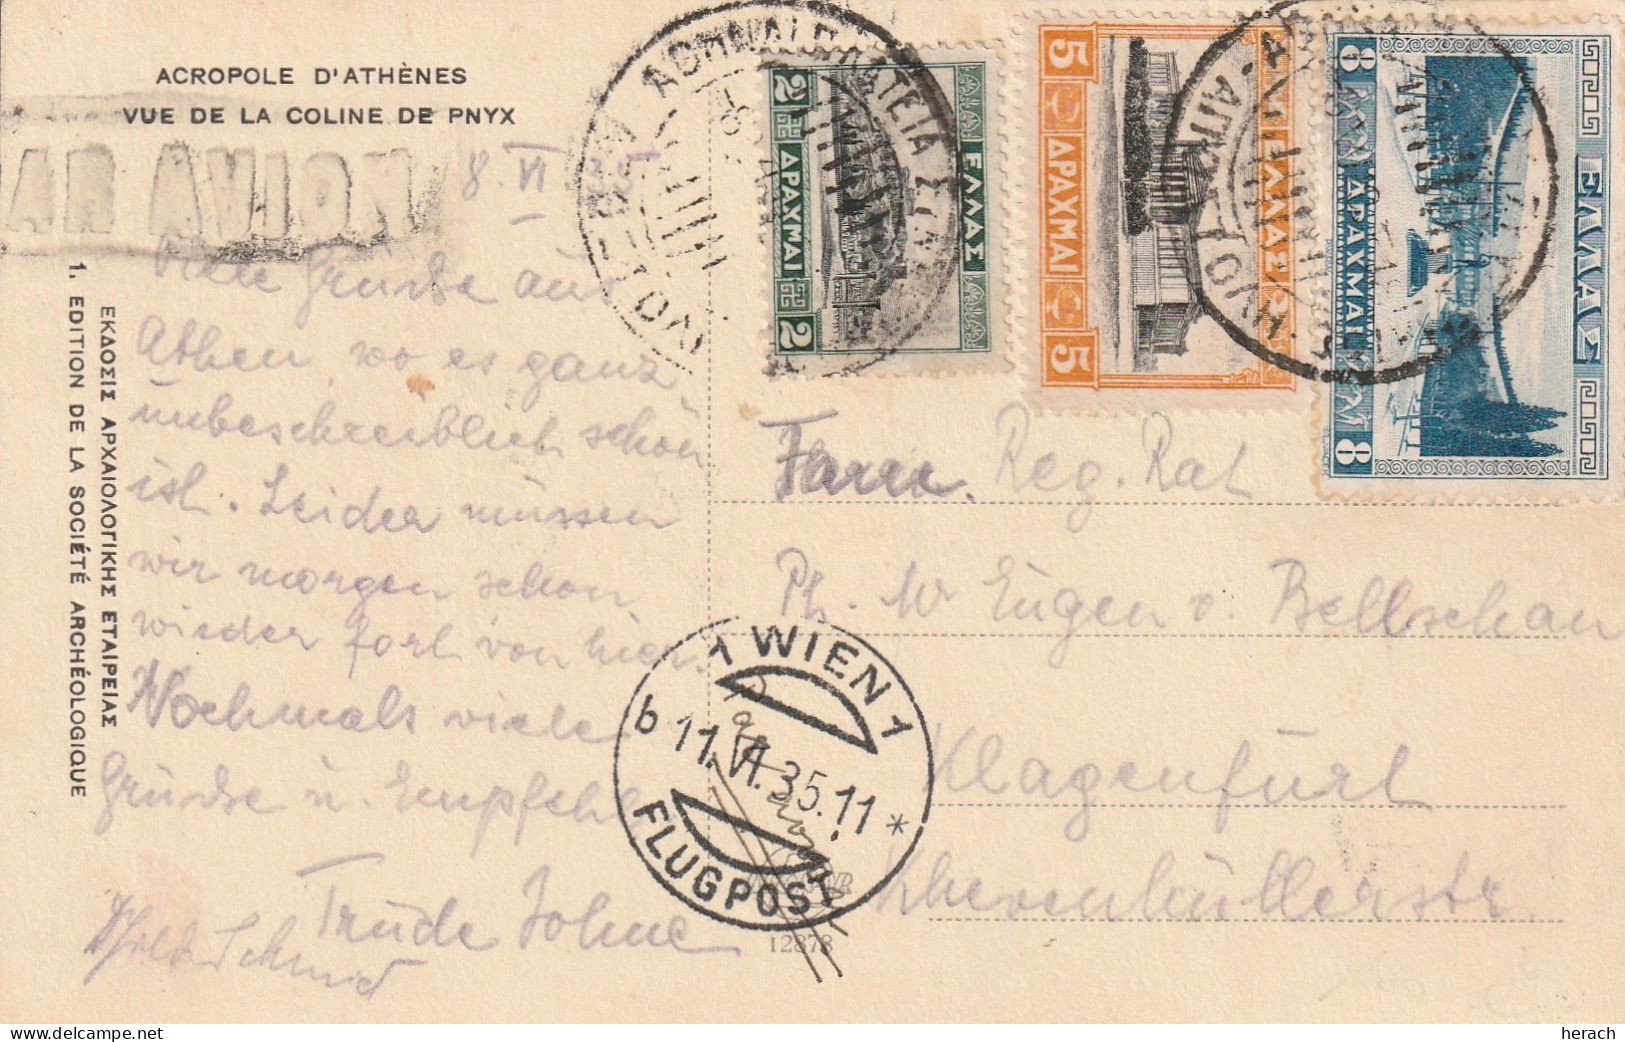 ACROPOLE D'ATHÈNES
VUE DE LA COLINE DE PNYX
PAR AVION
8. VI
Viele Grüsse aus
Athen, wo es ganz
unbeschreiblich schön
ist. Leider müssen
wir morgen schon
wieder fort von hier.
Nochmals viele
Grüsse u. Empfehl.
Trude
Schmid
ΕΚΔΟΣΙΣ ΑΡΧΑΙΟΛΟΓΙΚΗΣ ΕΤΑΙΡΕΙΑΣ
1. EDITION DE LA SOCIÉTÉ ARCHÉOLOGIQUE
2 ΔΡΑΧΜΑΙ 2
ΕΛΛΑΣ
5 ΔΡΑΧΜΑΙ 5
ΕΛΛΑΣ
8 ΔΡΑΧΜΑΙ 8
ΕΛΛΑΣ
Reg. Rat
Eugen v.
Klagenfurt
Khevenhüllerstr.
1 WIEN 1
b 11.VI.35.11 *
FLUGPOST
12878
herach | www.delcampe.net